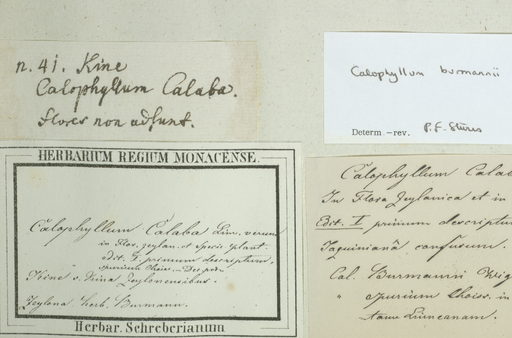 n. 41. Kine
Calophyllum Calaba.
flores non adsunt.
Calophyllum burmannii
Determ. – rev. P.F. Stevens
HERBARIUM REGIUM MONACENSE.
Calophyllum Calaba Lin. verum
in Flor. zeylan. et specie plant.
Edit. I. primum descriptum,
spurium Chois.
Kine v. Kina Zeylonensibus.
Zeylona, herb. Burmann.
Herbar. Schreberianum
Calophyllum Calab
In Flora Zeylanica et in
Edit. I primum descriptu
Jaquiniana confusum.
Cal. Burmanni Wig
" spurium Choiss. in
Linneanam.